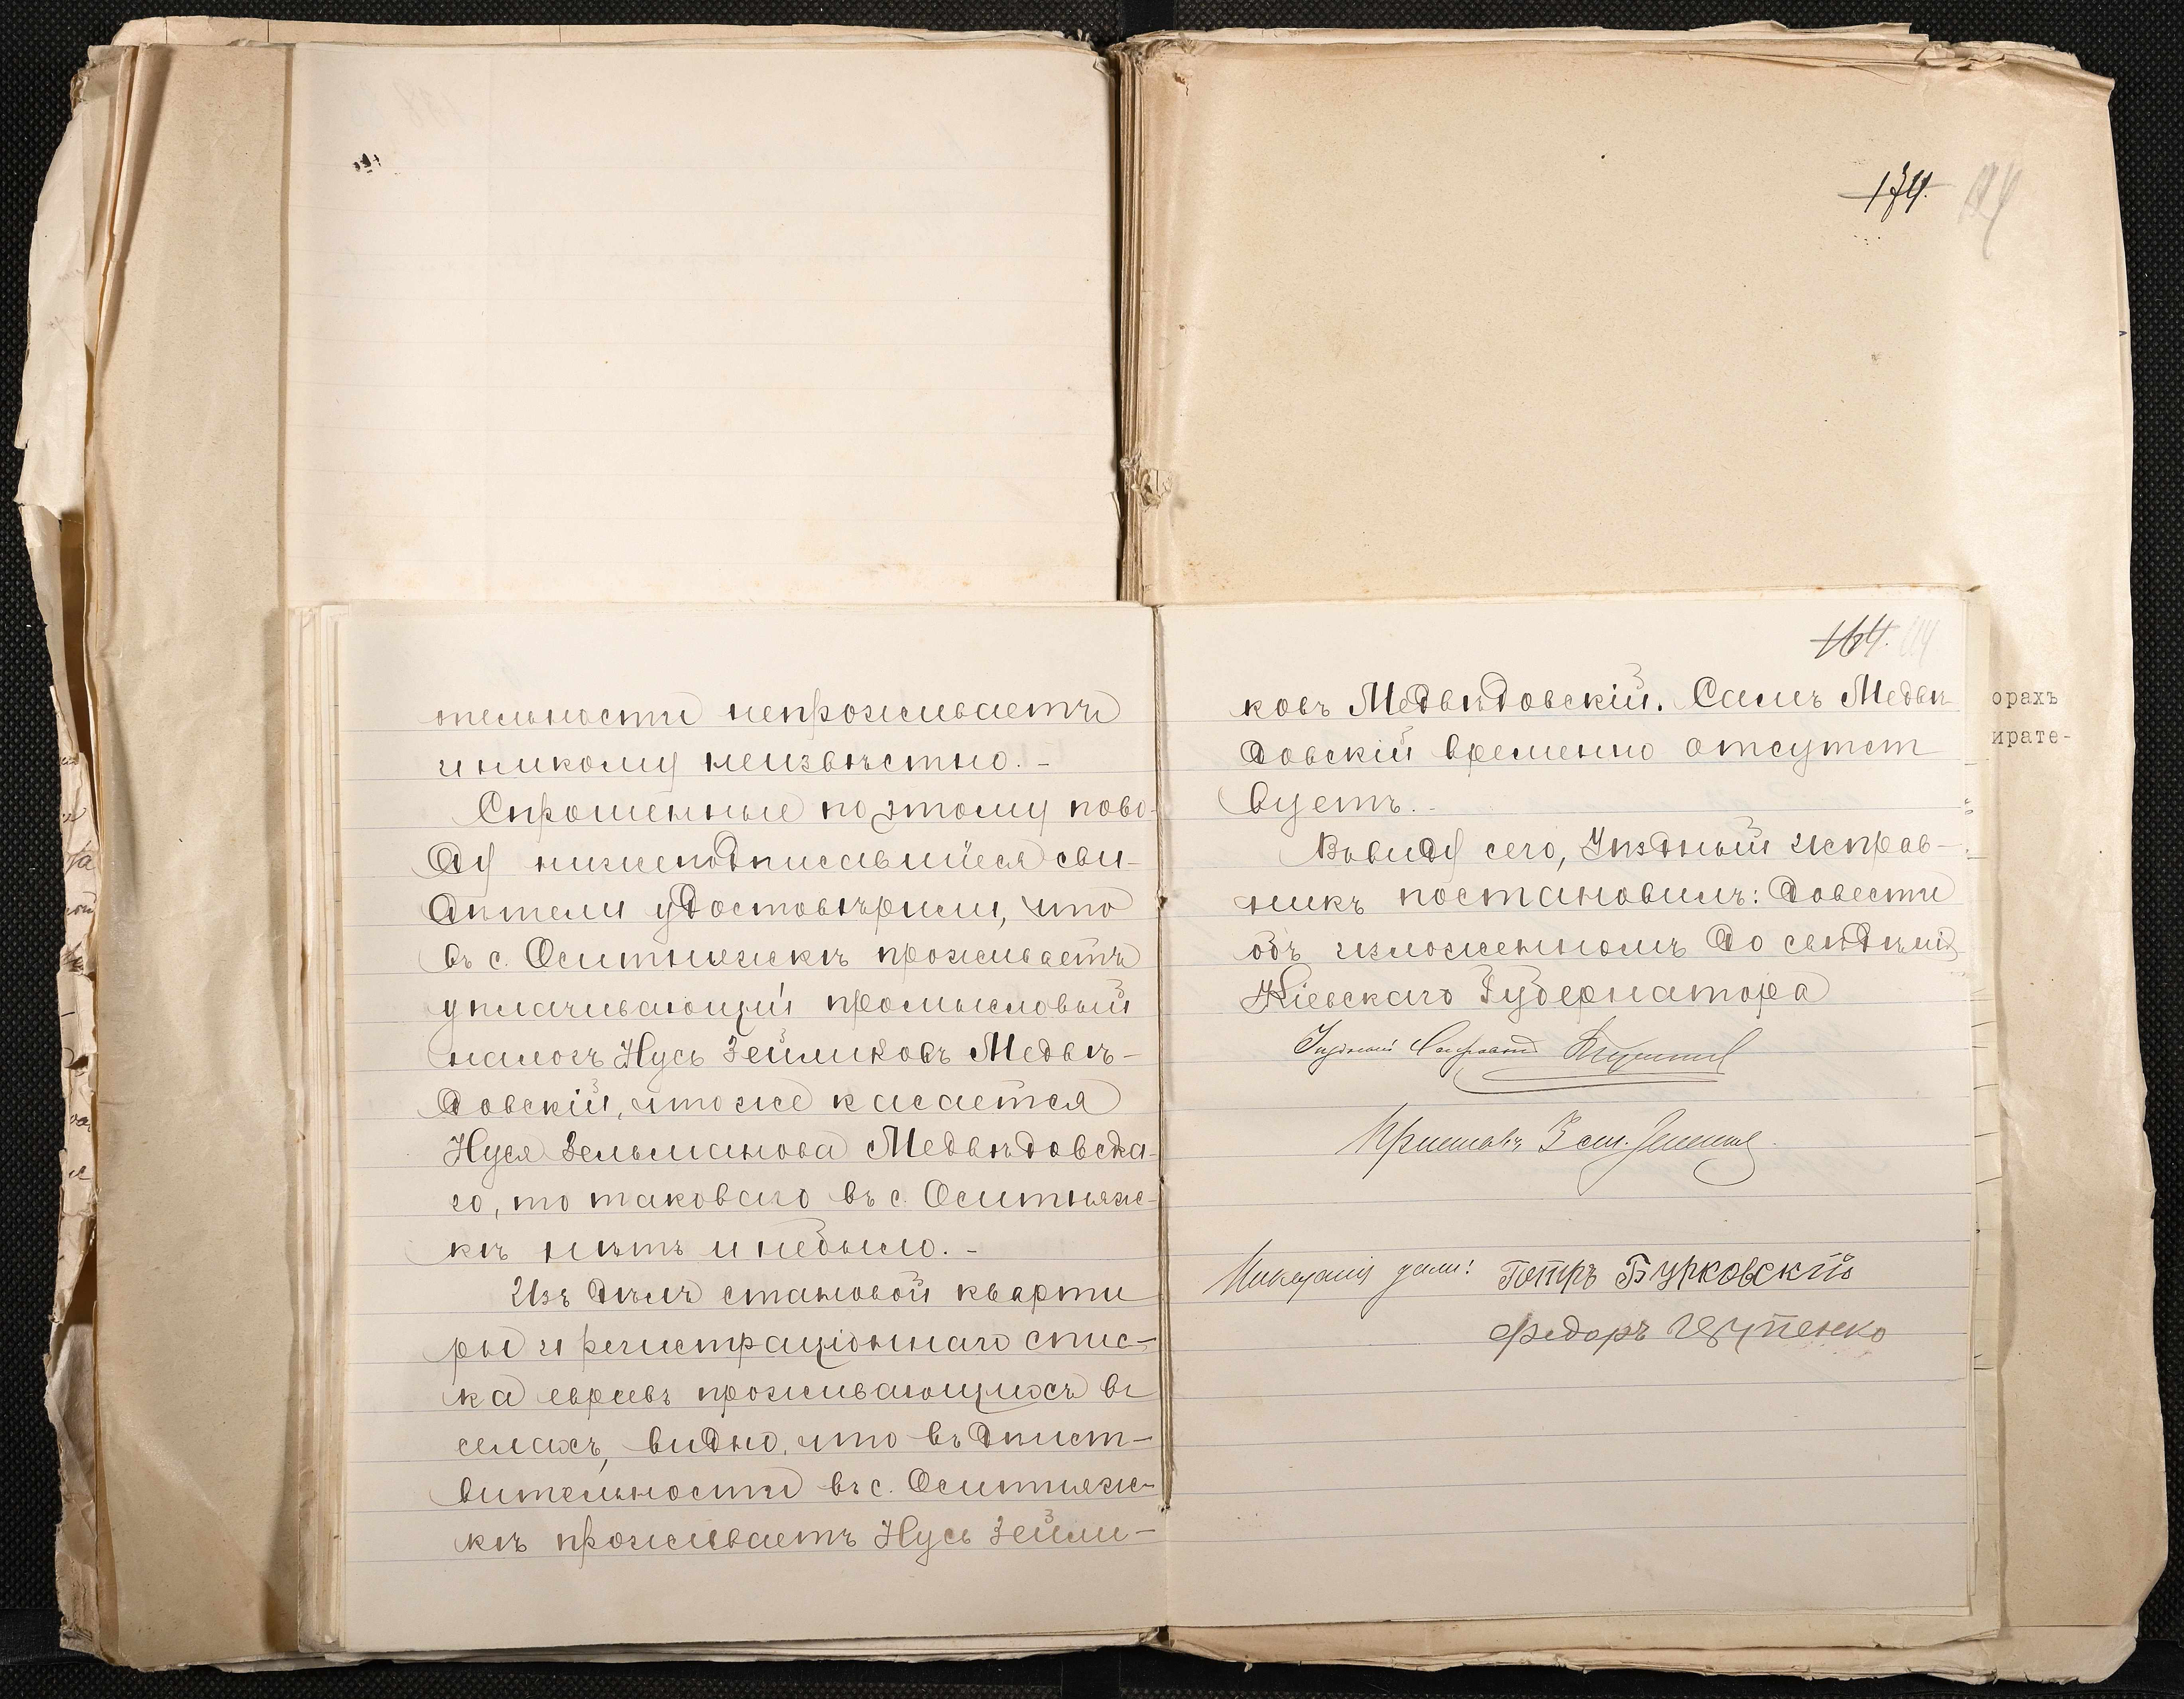 тельности непроживаетъ
и никому неизвѣстно. -
Спрошенные по этому пово-
ду нижеподписавшіеся сви-
дѣтели удостовѣрили, что
въ с. Оситняжкѣ проживаетъ
уплачивающій промысловый
налогъ Нусь Зейликовъ Медвѣ-
довскій, что же касается
Нуся Зельманова Медвѣдовска-
го, то таковаго въ с. Оситняж-
кѣ нѣтъ и небыло. -
Изъ дѣлъ становой кварти
ры и регистраціоннаго спис-
ка евреевъ проживающихъ въ
селахъ, видно, что въ дѣйст-
вительности въ с. Оситняж-
кѣ проживаетъ Нусь Зейли-
174.
164.
ковъ Медвѣдовскій. Самъ Медвѣ
довскій временно отсутст
вуетъ. -
Ввиду сего, Уѣздный исправ-
никъ постановилъ: довести
объ изложенномъ до свѣдѣнія
Кіевскаго Губернатора
Уѣздный Исправникъ
Приставъ 3 ст.
Показанія дали: Петръ Бурковскій
Федоръ
орахъ
ирате-